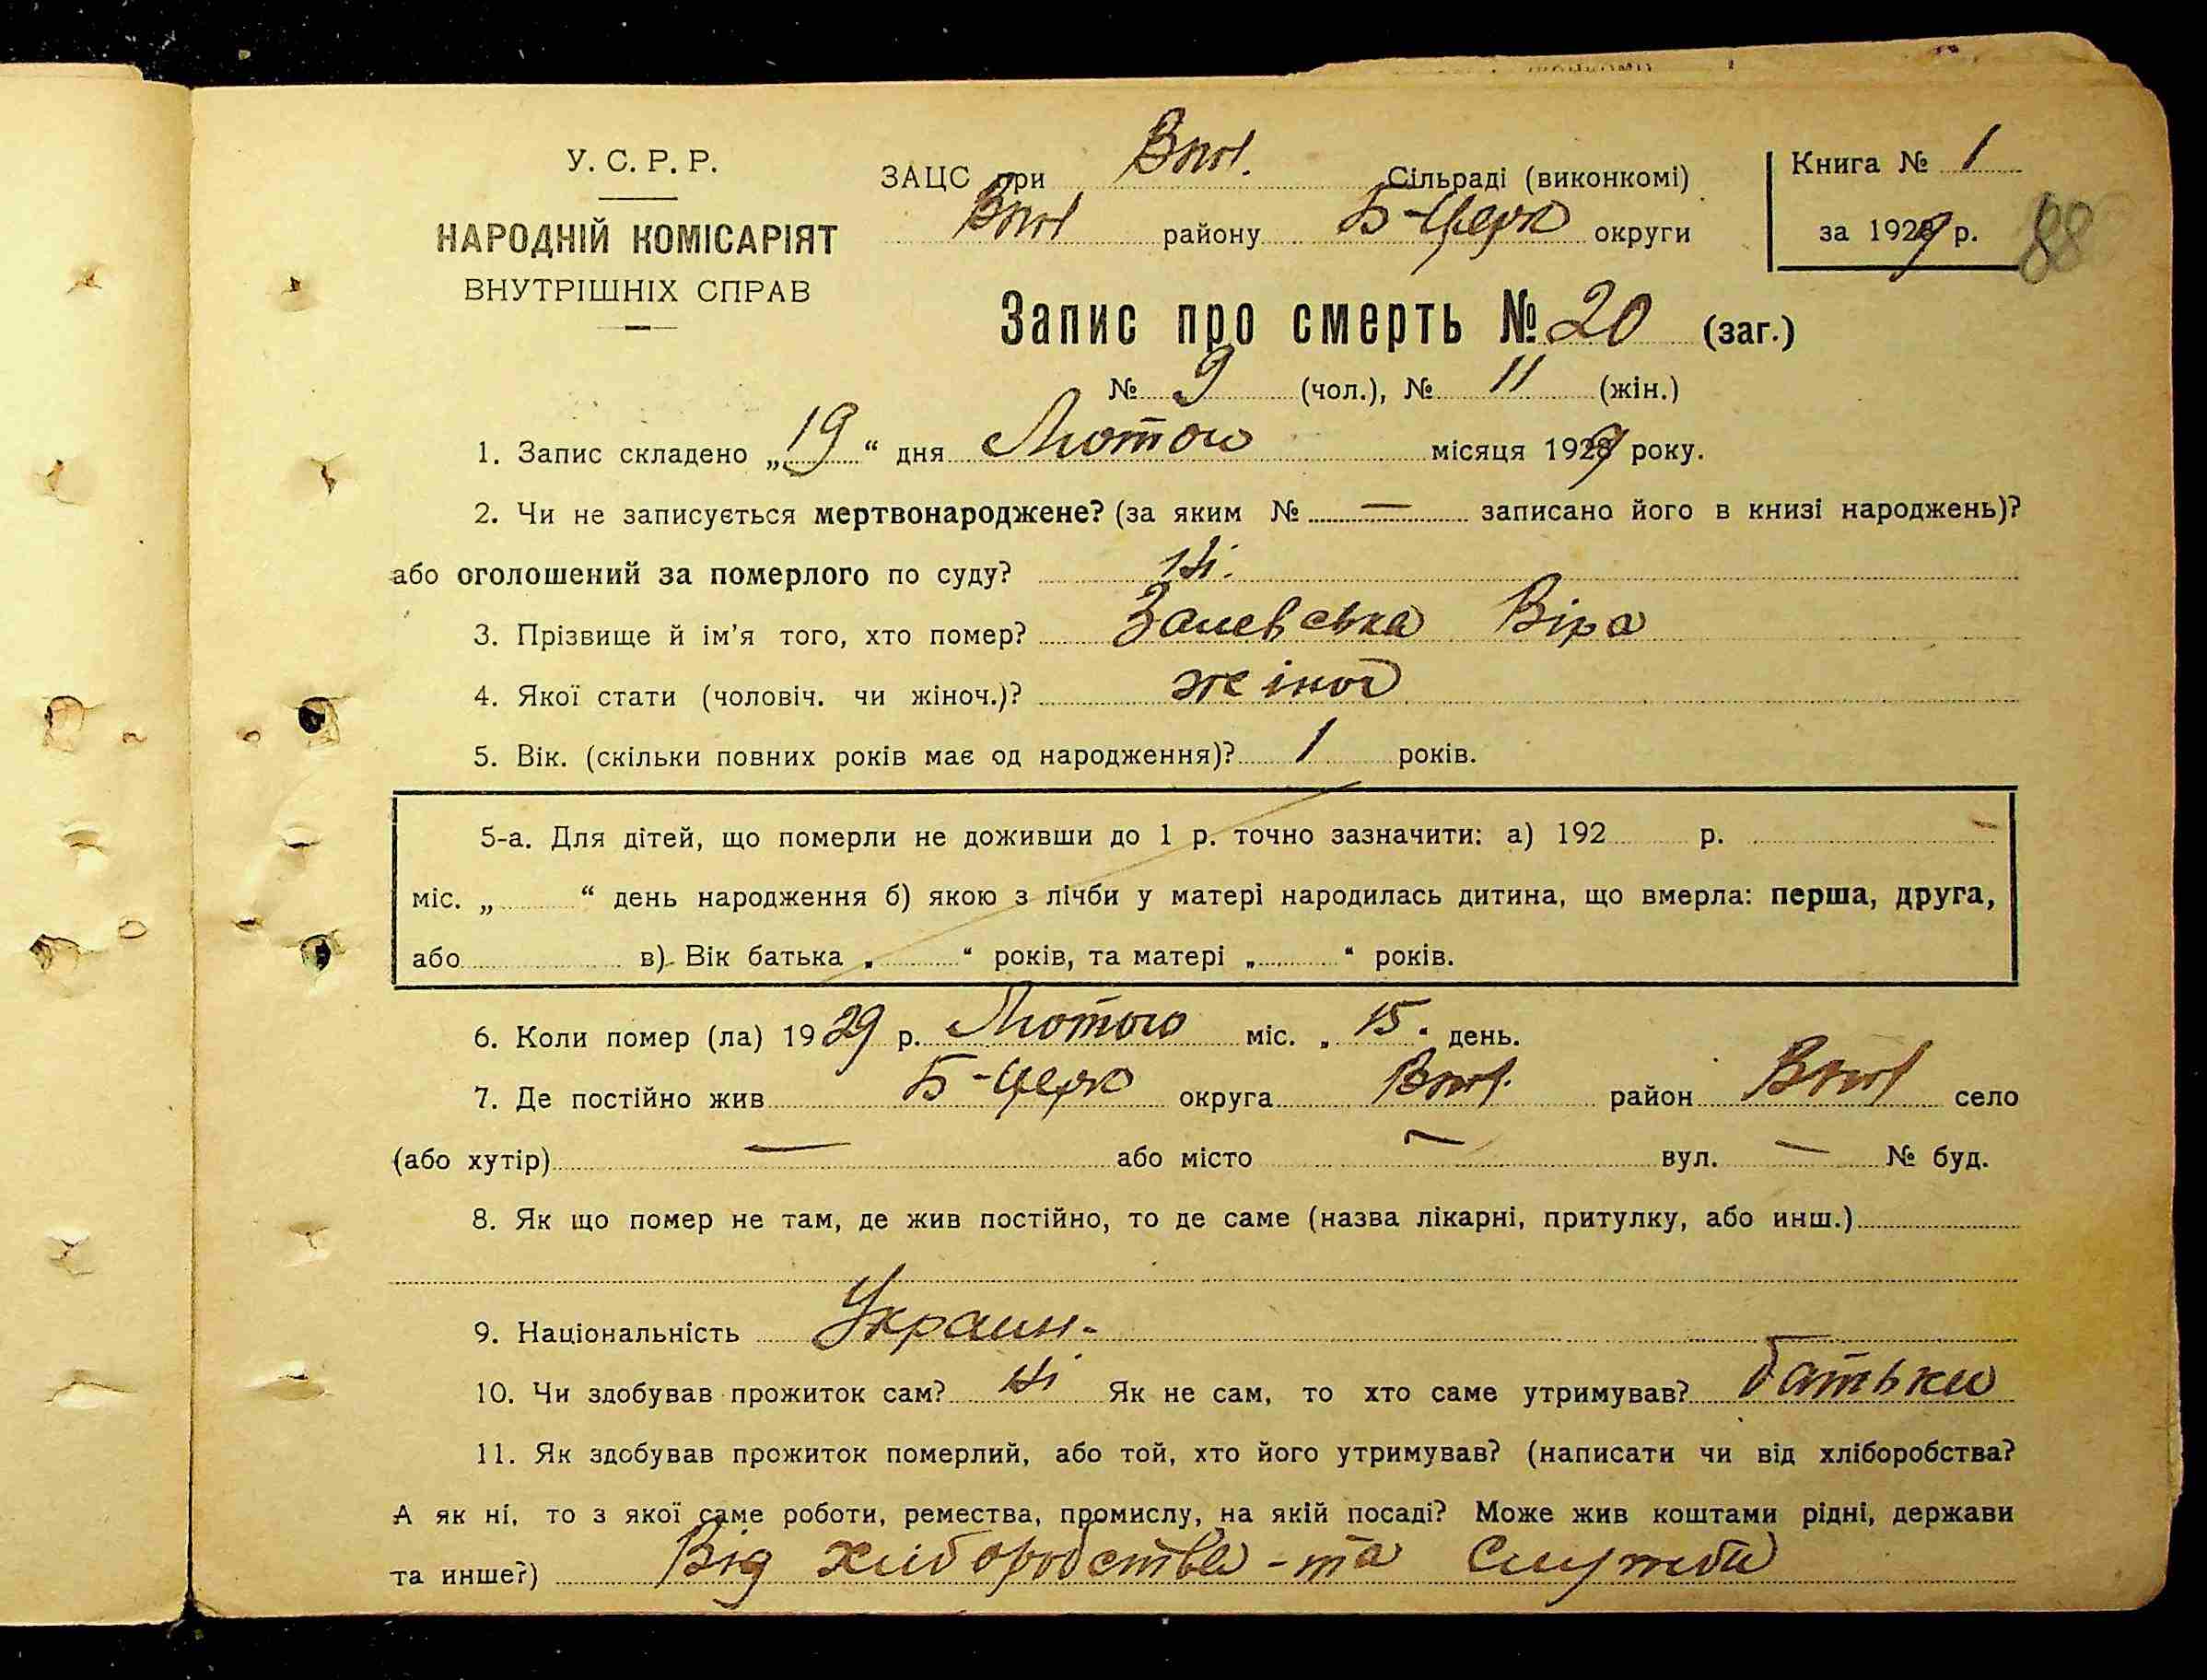 У. С. Р. Р.
НАРОДНІЙ КОМІСАРІЯТ
ВНУТРІШНІХ СПРАВ
ЗАЦС при Сільраді (виконкомі)
району Б-Церк округи
Книга № 1
за 1929 р.
88
Запис про смерть № 20 (заг.)
№ 9 (чол.), № 11 (жін.)
1. Запис складено „19“ дня Лютого місяця 1929 року.
2. Чи не записується мертвонароджене? (за яким № — записано його в книзі народжень)?
або оголошений за померлого по суду? Ні.
3. Прізвище й ім'я того, хто помер? Залевська Віра
4. Якої стати (чоловіч. чи жіноч.)? жіноч
5. Вік. (скільки повних років має од народження)? 1 років.
5-а. Для дітей, що померли не доживши до 1 р. точно зазначити: а) 192 р.
міс. „ “ день народження б) якою з лічби у матері народилась дитина, що вмерла: перша, друга,
або в) Вік батька „ “ років, та матері „ “ років.
6. Коли помер (ла) 1929 р. Лютого міс. „15“ день.
7. Де постійно жив Б-Церк округа район село
(або хутір) — або місто — вул. — № буд.
8. Як що помер не там, де жив постійно, то де саме (назва лікарні, притулку, або инш.)
9. Національність Украин.
10. Чи здобував прожиток сам? Ні Як не сам, то хто саме утримував? батьки
11. Як здобував прожиток померлий, або той, хто його утримував? (написати чи від хліборобства?
А як ні, то з якої саме роботи, ремества, промислу, на якій посаді? Може жив коштами рідні, держави
та инше?) Від хліборобства - та служби